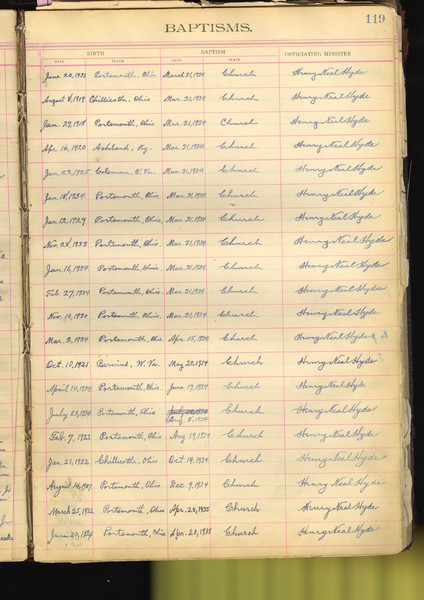 119
BAPTISMS.
BIRTH BAPTISM OFFICIATING MINISTER
DATE PLACE DATE PLACE
June 20, 1933 Portsmouth, Ohio March 31, 1934 Church Henry Neal Hyde
August 8, 1919 Chillicothe, Ohio Mar. 31, 1934 Church Henry Neal Hyde
Jan. 29, 1918 Portsmouth, Ohio Mar. 31, 1934 Church Henry Neal Hyde
Apr. 16, 1920 Ashland, Ky. Mar. 31, 1934 Church Henry Neal Hyde
Jan. 22, 1925 W. Va. Mar. 31, 1934 Church Henry Neal Hyde
Jan. 18, 1934 Portsmouth, Ohio Mar. 31, 1934 Church Henry Neal Hyde
Jan. 12, 1929 Portsmouth, Ohio Mar. 31, 1934 Church Henry Neal Hyde
Nov. 28, 1933 Portsmouth, Ohio Mar. 31, 1934 Church Henry Neal Hyde
Jan. 16, 1924 Portsmouth, Ohio Mar. 31, 1934 Church Henry Neal Hyde
Feb. 27, 1934 Portsmouth, Ohio Mar. 31, 1934 Church Henry Neal Hyde
Nov. 10, 1930 Portsmouth, Ohio Mar. 31, 1934 Church Henry Neal Hyde
Mar. 2, 1934 Portsmouth, Ohio Apr. 15, 1934 Church Henry Neal Hyde
Oct. 10, 1921 W. Va. May 20, 1934 Church Henry Neal Hyde
April 10, 1934 Portsmouth, Ohio June 17, 1934 Church Henry Neal Hyde
July 20, 1934 Portsmouth, Ohio July 20, 1934 Church Henry Neal Hyde
(Aug. 5, 1934
Feb. 7, 1932 Portsmouth, Ohio Aug. 19, 1934 Church Henry Neal Hyde
Jan. 21, 1932 Chillicothe, Ohio Oct. 14, 1934 Church Henry Neal Hyde
August 14, 1907 Portsmouth, Ohio Dec. 9, 1934 Church Henry Neal Hyde
March 25, 1932 Portsmouth, Ohio Apr. 20, 1935 Church Henry Neal Hyde
June 20, 1924 Portsmouth, Ohio Apr. 20, 1935 Church Henry Neal Hyde